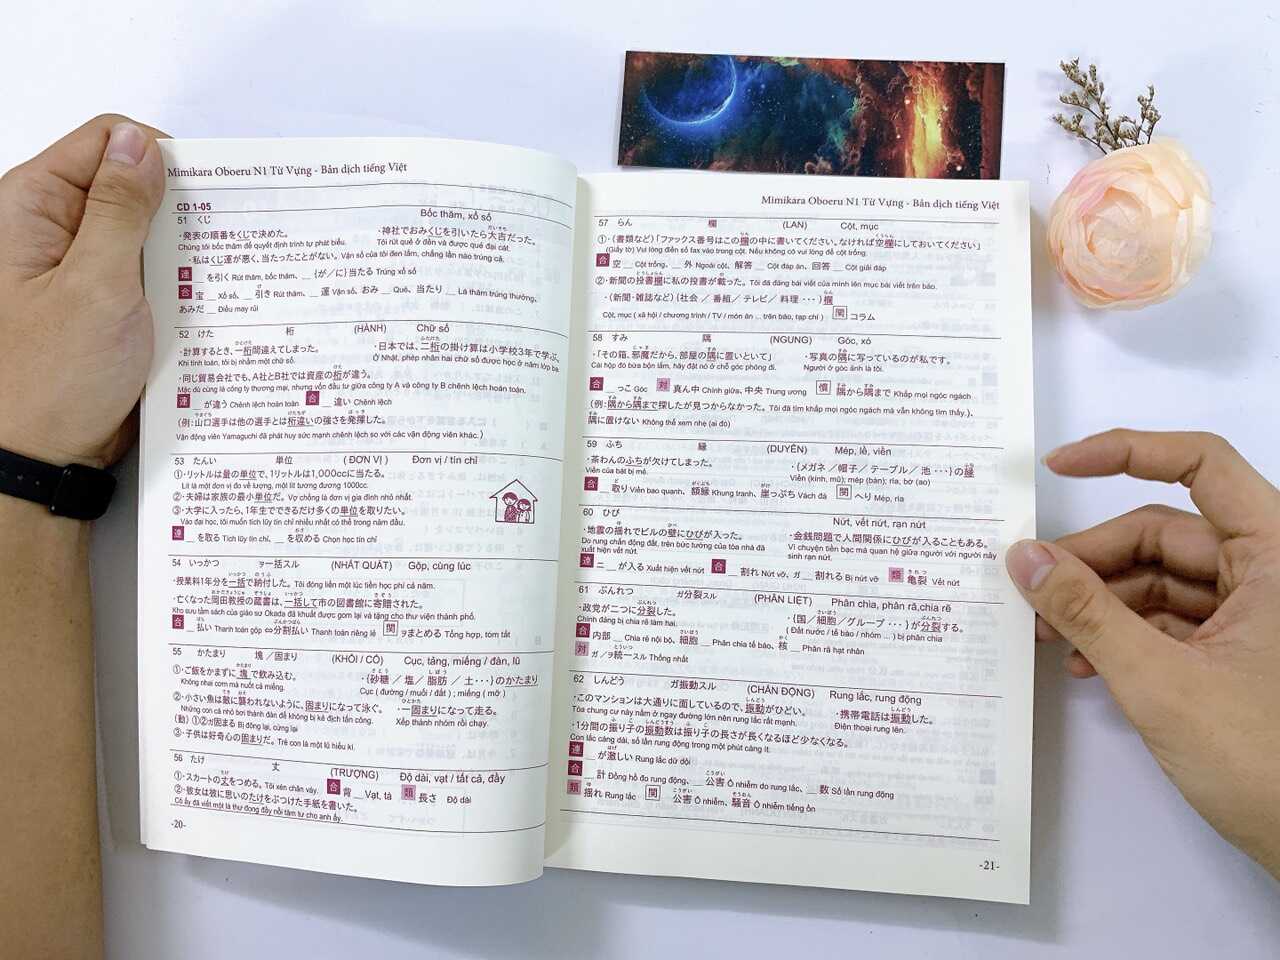 Mimikara Oboeru N1 Từ Vựng - Bản dịch tiếng Việt
CD 1-05
51 くじ Bốc thăm, xổ số
・発表の順番をくじで決めた。 ・神社でおみくじを引いたら大吉だった。
Chúng tôi bốc thăm để quyết định trình tự phát biểu. Tôi rút quẻ ở đền và được quẻ đại cát.
・私はくじ運が悪く、当たったことがない。 Vận số của tôi đen lắm, chẳng lần nào trúng cả.
連 __を引く Rút thăm, bốc thăm、 __{が/に}当たる Trúng xổ số
合 宝__ Xổ số、 __引き Rút thăm、 __運 Vận số、おみ__ Quẻ、当たり__ Lá thăm trúng thưởng、
あみだ__ Điều may rủi
52 けた 桁 (HÀNH) Chữ số
・計算するとき、一桁間違えてしまった。 ・日本では、二桁の掛け算は小学校3年で学ぶ。
Khi tính toán, tôi bị nhầm một chữ số. Ở Nhật, phép nhân hai chữ số được học ở năm lớp ba.
・同じ貿易会社でも、A社とB社では資産の桁が違う。
Mặc dù cùng là công ty thương mại, nhưng vốn đầu tư giữa công ty A và công ty B chênh lệch hoàn toàn.
連 __が違う Chênh lệch hoàn toàn 合 __違い Chênh lệch
(例:山口選手は他の選手とは桁違いの強さを発揮した。
Vận động viên Yamaguchi đã phát huy sức mạnh chênh lệch so với các vận động viên khác.)
53 たんい 単位 ( ĐƠN VỊ ) Đơn vị / tín chỉ
①・リットルは量の単位で、1リットルは1,000ccに当たる。
Lít là một đơn vị đo về lượng, một lít tương đương 1000cc.
②・夫婦は家族の最小単位だ。 Vợ chồng là đơn vị gia đình nhỏ nhất.
③・大学に入ったら、1年生でできるだけ多くの単位を取りたい。
Vào đại học, tôi muốn tích lũy tín chỉ nhiều nhất có thể trong năm đầu.
連 __を取る Tích lũy tín chỉ、 __を収める Chọn học tín chỉ
54 いっかつ ヲ一括スル (NHẤT QUÁT) Gộp, cùng lúc
・授業料1年分を一括で納付した。 Tôi đóng liền một lúc tiền học phí cả năm.
・亡くなった岡田教授の蔵書は、一括して市の図書館に寄贈された。
Kho sưu tầm sách của giáo sư Okada đã khuất được gom lại và tặng cho thư viện thành phố.
合 __払い Thanh toán gộp ⇔分割払い Thanh toán riêng lẻ 関 ヲまとめる Tổng hợp, tóm tắt
55 かたまり 塊 / 固まり (KHỐI / CỐ) Cục, tảng, miếng / đàn, lũ
①・ご飯をかまずに塊で飲み込む。 ・{砂糖 / 塩 / 脂肪 / 土・・・}のかたまり
Không nhai cơm mà nuốt cả miếng. Cục ( đường / muối / đất ) ; miếng ( mỡ )
②・小さい魚は敵に襲われないように、固まりになって泳ぐ。 ・一固まりになって走る。
Những con cá nhỏ bơi thành đàn để không bị kẻ địch tấn công. Xếp thành nhóm rồi chạy.
(動) ①②ガ固まる Bị đông lại, cứng lại
③・子供は好奇心の固まりだ。 Trẻ con là một lũ hiếu kì.
56 たけ 丈 (TRƯỢNG) Độ dài, vạt / tất cả, đầy
①・スカートの丈をつめる。 Tôi xén chân váy. 合 背__ Vạt, tà 類 長さ Độ dài
②・彼女は彼に思いのたけをぶつけた手紙を書いた。
Cô ấy đã viết một lá thư đong đầy nỗi tâm tư cho anh ấy.
-20-
Mimikara Oboeru N1 Từ Vựng - Bản dịch tiếng Việt
57 らん 欄 (LAN) Cột, mục
①・(書類など)「ファックス番号はこの欄の中に書いてください。なければ空欄にしておいてください」
(Giấy tờ) Vui lòng điền số fax vào trong cột. Nếu không có vui lòng để cột trống.
合 空__ Cột trống、 __外 Ngoài cột、解答__ Cột đáp án、回答__ Cột giải đáp
②・新聞の投書欄に私の投書が載った。 Tôi đã đăng bài viết của mình lên mục bài viết trên báo.
・(新聞・雑誌など) (社会 / 番組 / テレビ / 料理 ・・・) 欄
Cột, mục ( xã hội / chương trình / TV / món ăn ... trên báo, tạp chí ) 関 コラム
58 すみ 隅 (NGUNG) Góc, xó
・「その箱、邪魔だから、部屋の隅に置いといて」 ・写真の隅に写っているのが私です。
Cái hộp đó bừa bộn lắm, hãy đặt nó ở chỗ góc phòng đi. Người ở góc ảnh là tôi.
合 __っこ Góc 対 真ん中 Chính giữa、中央 Trung ương 慣 隅から隅まで Khắp mọi ngóc ngách
(例:隅から隅まで探したが見つからなかった。 Tôi đã tìm khắp mọi ngóc ngách mà vẫn không tìm thấy.)、
隅に置けない Không thể xem nhẹ (ai đó)
59 ふち 縁 (DUYÊN) Mép, lề, viền
・茶わんのふちが欠けてしまった。 ・(メガネ /帽子/ テーブル/ 池 ・・・)の縁
Viền của bát bị mẻ. Viền (kính, mũ); mép (bàn); rìa, bờ (ao)
合 __取り Viền bao quanh、額縁 Khung tranh、崖っぷち Vách đá 関 へり Mép, rìa
60 ひび Nứt, vết nứt, rạn nứt
・地震の揺れでビルの壁にひびが入った。 ・金銭問題で人間関係にひびが入ることもある。
Do rung chấn động đất, trên bức tường của tòa nhà đã Vì chuyện tiền bạc mà quan hệ giữa người với người nảy
xuất hiện vết nứt. sinh rạn nứt.
連 ニ__が入る Xuất hiện vết nứt 合 __割れ Nứt vỡ、ガ__割れる Bị nứt vỡ 類 亀裂 Vết nứt
61 ぶんれつ ガ分裂スル (PHÂN LIỆT) Phân chia, phân rã, chia rẽ
・政党が二つに分裂した。 ・{国/細胞/グループ ・・・}が分裂する。
Chính đảng bị chia rẽ làm hai. ( Đất nước / tế bào / nhóm ... ) bị phân chia
合 内部__ Chia rẽ nội bộ、細胞__ Phân chia tế bào、核__ Phân rã hạt nhân
対 ガ/ヲ統一スル Thống nhất
62 しんどう ガ振動スル (CHẤN ĐỘNG) Rung lắc, rung động
・このマンションは大通りに面しているので、振動がひどい。 ・携帯電話は振動した。
Tòa chung cư này nằm ở ngay đường lớn nên rung lắc rất mạnh. Điện thoại rung lên.
・1分間の振り子の振動数は振り子の長さが長くなるほど少なくなる。
Con lắc càng dài, số lần rung động trong một phút càng ít.
連 __が激しい Rung lắc dữ dội
合 __計 Đồng hồ đo rung động、__公害 Ô nhiễm do rung lắc、__数 Số lần rung động
類 揺れ Rung lắc 関 公害 Ô nhiễm、騒音 Ô nhiễm tiếng ồn
-21-